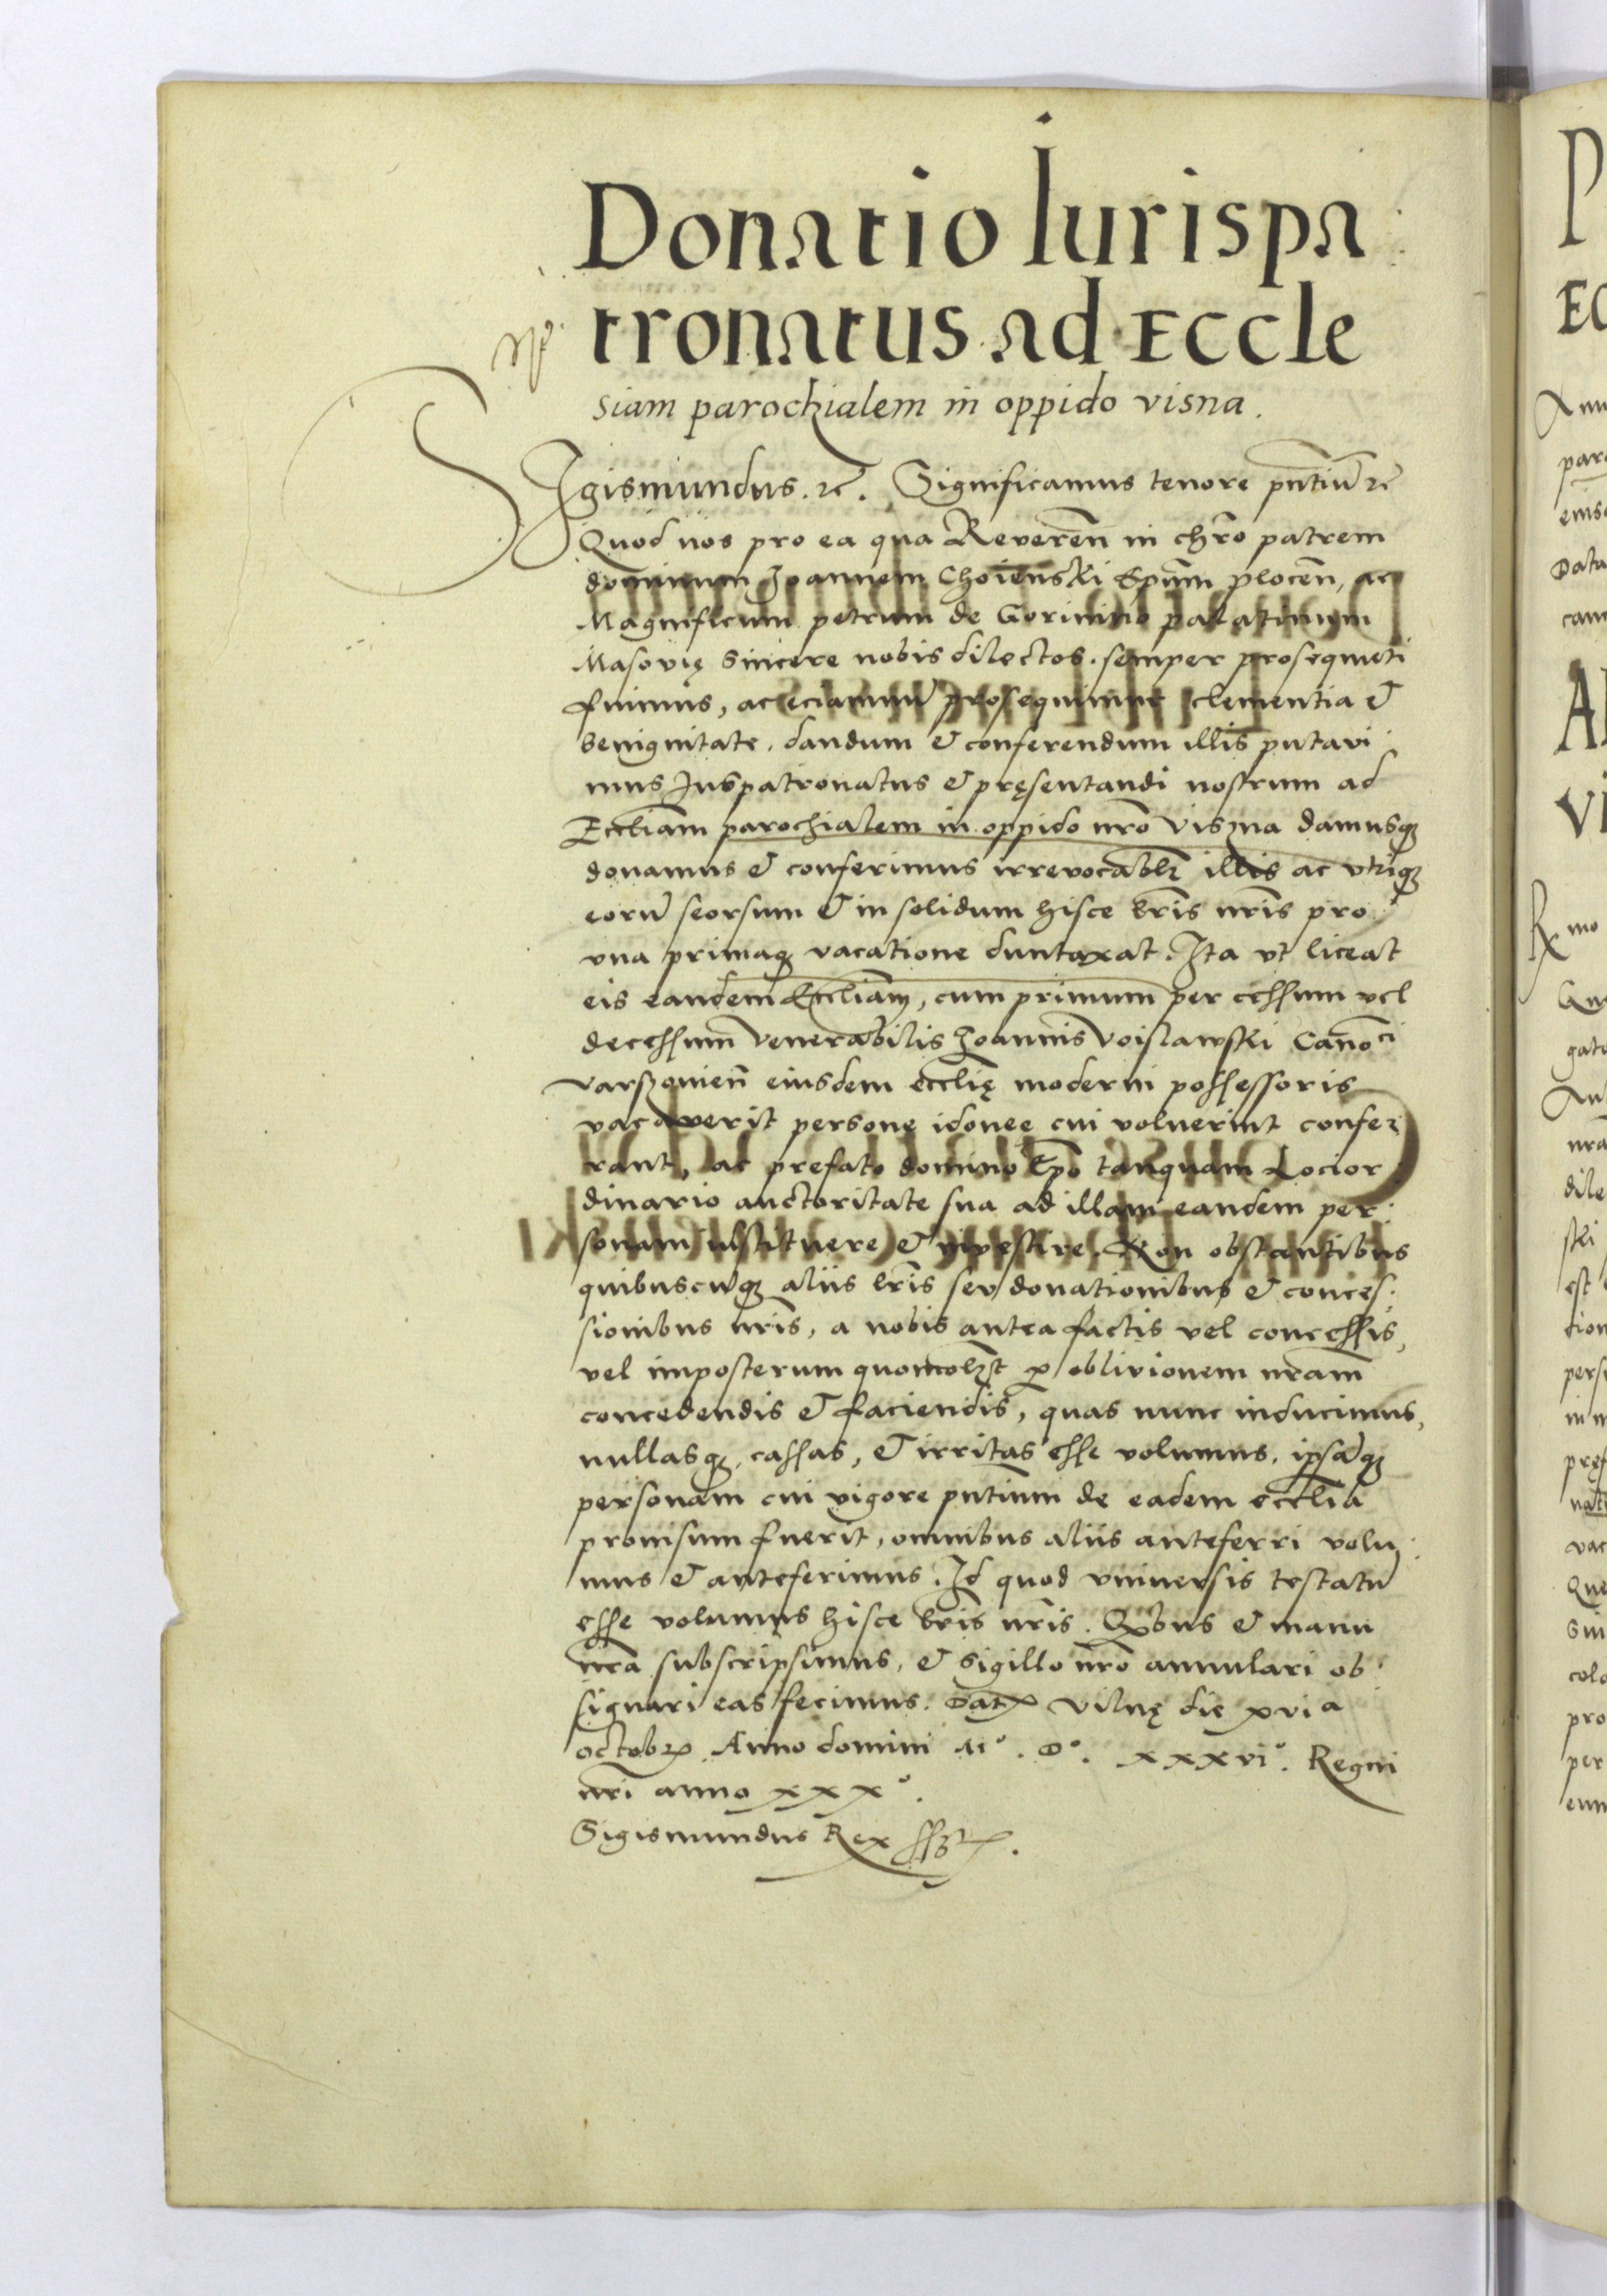 Donatio Iurispa
tronatus ad Eccle
siam parochialem in oppido visna.
Sigismundus. rc̄. Significamus tenore pn̄tiū rc̄
Quod nos pro ea qua Reveren̄ in chr̄o patrem
dominum Joannem Choienski Ep̄um plocen̄, ac
Magnificum petrum de Gorinino palatinum
Masovię sincere nobis dilectos. semper prosequuti
fuimus, ac eciamnū prosequimur clementia et
benignitate, dandum et conferendum illis putavi
mus Juspatronatus et pręsentandi nostrum ad
Eccl̄iam parochialem in oppido nr̄o visna damusq3
donamus et conferimus irrevocabl̄r illis ac utriq3
eorū seorsum et in solidum hisce l̄ris nr̄is pro
una primaq3 vacatione duntaxat. Ita ut liceat
eis eandem Eccl̄iam, cum primum per cessum vel
decessum venerabilis Joannis Voislawski Canoci
varszovien̄ eiusdem eccl̄ię moderni possessoris
vacaverit persone idonee cui voluerint confer
rant, ac prefato domino Ep̄o tanquam Locior
dinario auctoritate sua ad illam eandem per
sonam instituere et investire. Non obstantibus
quibuscūq3 aliis l̄ris seu donationibus et conces
sionibus nr̄is, a nobis antea factis vel concessis,
vel imposterum quomol3t p oblivionem nr̄am
concedendis et faciendis, quas nunc inducimus,
nullasq3, cassas, et irritas esse volumus. ipsāq3
personam cui vigore pn̄tium de eadem eccl̄ia
provisum fuerit, omnibus aliis anteferri volu
mus et anteferimus. Id quod universis testatū
esse volumus hisce l̄ris nr̄is. Qbus et manu
nr̄a subscripsimus, et sigillo nr̄o annulari ob
signari eas fecimus. Dat Vilnę die xvi a
octobr Anno domini M°. D°. xxxvi°. Regni
nr̄i anno xxx°.
Sigismundus Rex sst.